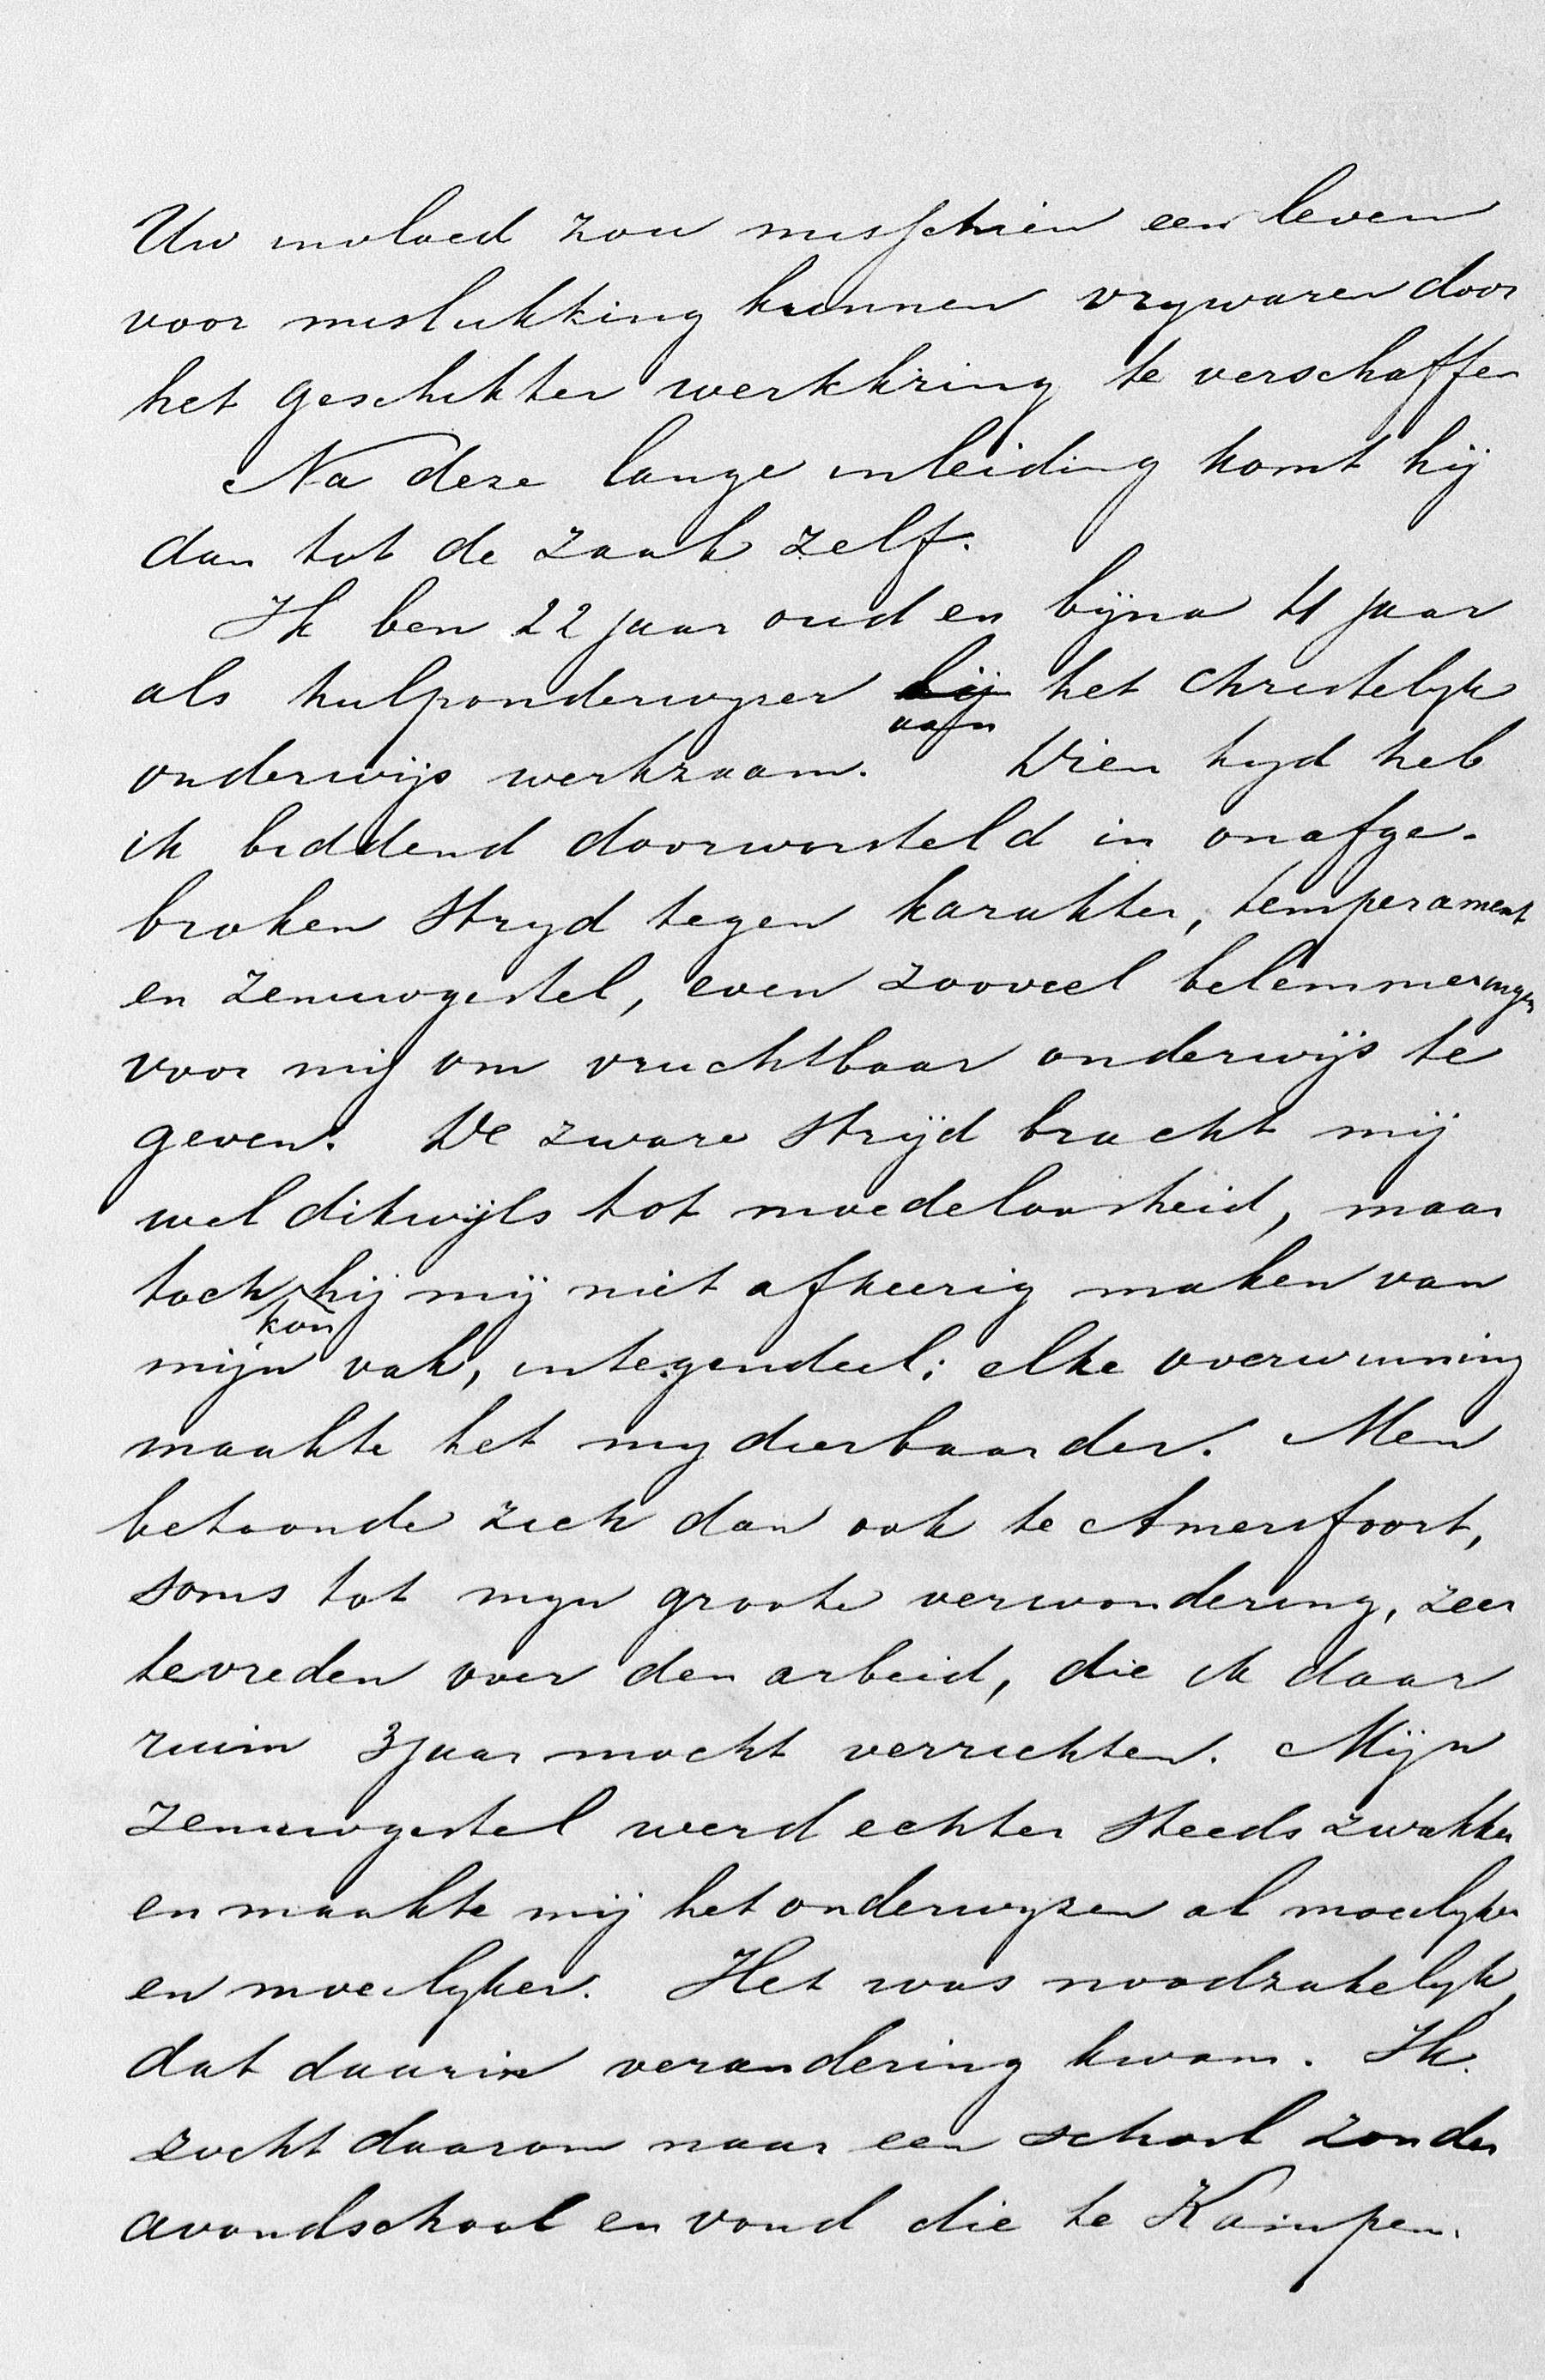 Uw invloed zou misschien een leven
voor mislukking kunnen vrywaren door
het geschikter werkkring te verschaffen
Na deze lange inleiding komt hij
dan tot de zaak zelf.
Ik ben 22 jaar oud en bijna 4 jaar
als hulponderwyzer bij aan het Christelyk
onderwijs werkzaam. Dien tyd heb
ik biddend doorworsteld in onafge-
broken stryd tegen karakter, temperament
en zenuwgestel, even zooveel belemmeringen
voor mij om vruchtbaar onderwijs te
geven. De zware strijd bracht mij
wel dikwijls tot moedeloosheid, maar
toch kon hij mij niet afkeerig maken van
mijn vak, integendeel; elke overwinning
maakte het my dierbaarder. Men
betoonde zich dan ook te Amersfoort,
soms tot myn groote verwondering, zeer
tevreden over den arbeid, die ik daar
ruim 3 jaar mocht verrichten. Mijn
zenuwgestel werd echter steeds zwakker
en maakte mij het onderwyzen al moeilyker
en moeilyker. Het was noodzakelyk,
dat daarin verandering kwam. Ik
zocht daarom naar een school zonder
avondschool en vond die te Kampen.